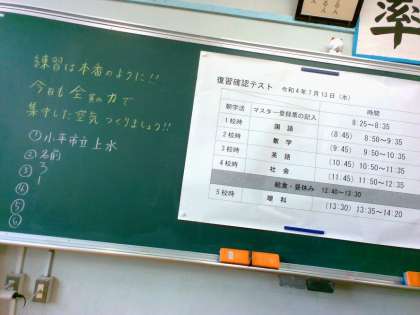 練習は本番のように!!
今日も全集力で
集中した空気つくりましょう!!
①小平市立上水
②名前
③ 3
④ 1
⑤
⑥
率
復習確認テスト 令和4年7月13日(水)
朝学活 マスター登録票の記入 時間 8:25~8:35
1校時 国語 (8:45) 8:50~9:35
2校時 数学 (9:45) 9:50~10:35
3校時 英語 (10:45) 10:50~11:35
4校時 社会 (11:45) 11:50~12:35
給食・昼休み 12:40~13:30
5校時 理科 (13:30) 13:35~14:20